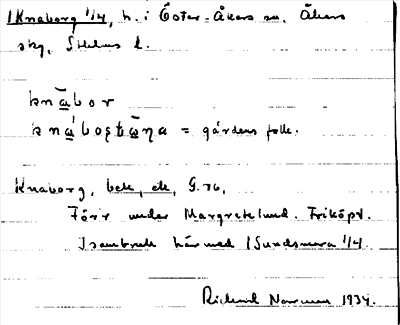 1 Knaborg 1/4, h. i Öster-Åkers sn, Åkers
skg, Sthlms l.
knābor
= gårdens folk.
Knaborg, bek, ek, G.
Förr under Margretelund. Friköpt.
I sambruk härmed 1 Sundsmara 1/4.
Rickard Norrman 1934.